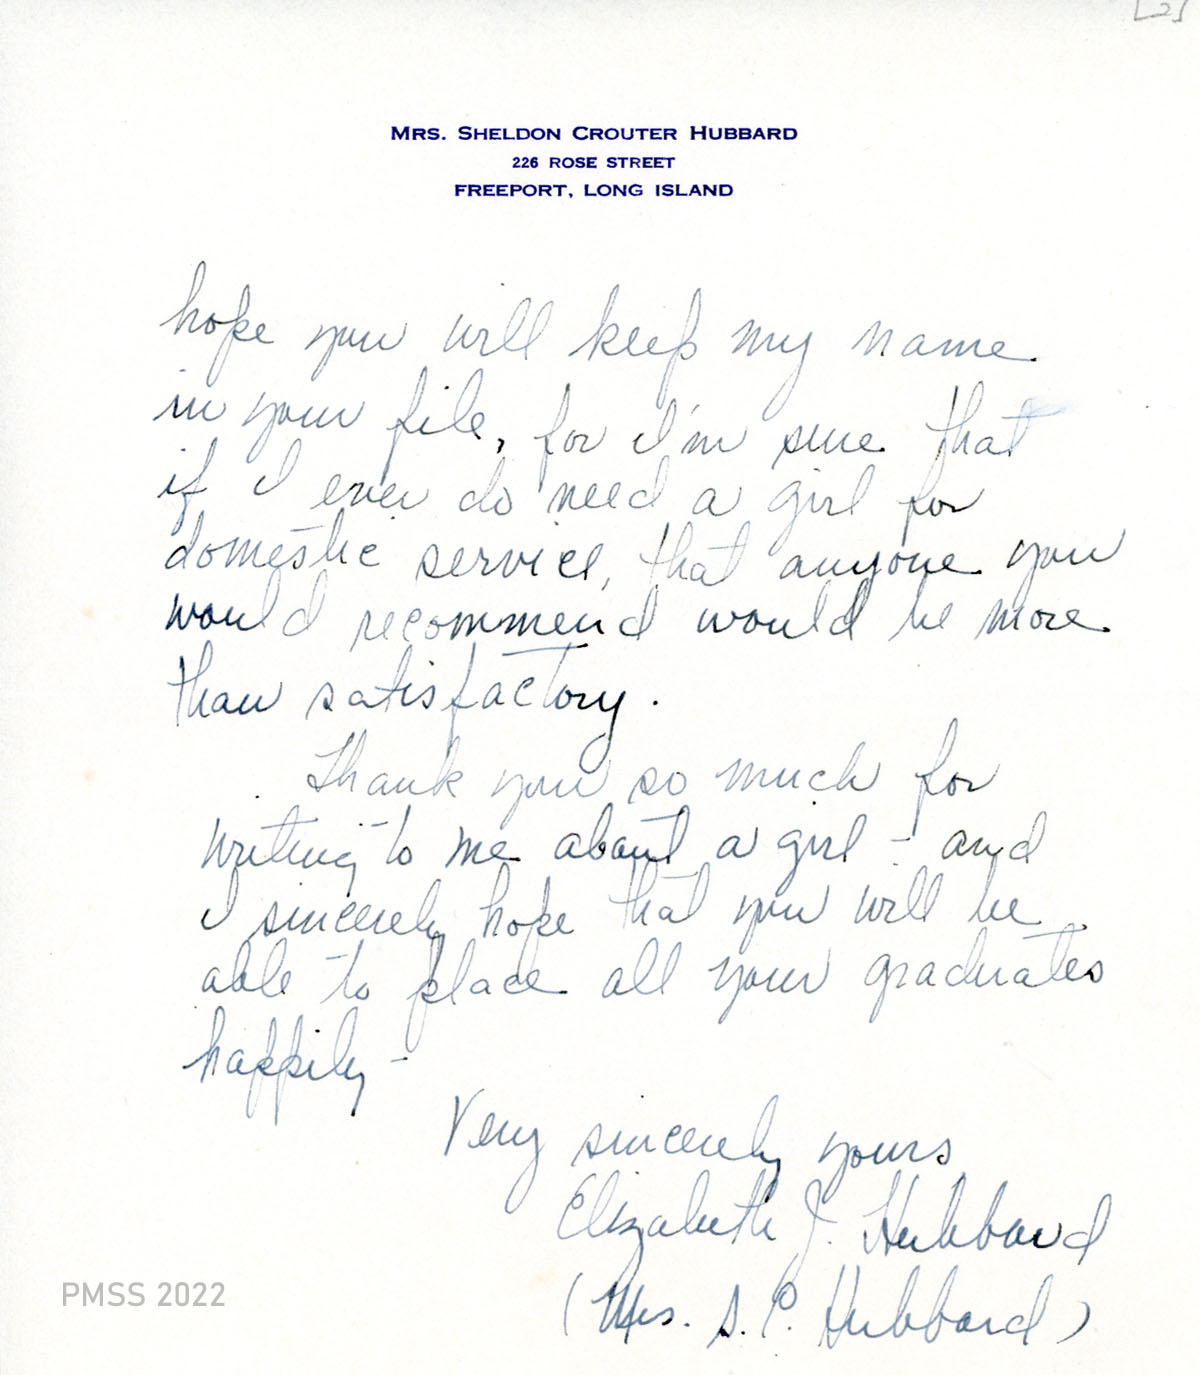 [2]
MRS. SHELDON CROUTER HUBBARD
226 ROSE STREET
FREEPORT, LONG ISLAND
hope you will keep my name
in your file, for I'm sure that
if I ever do need a girl for
domestic service, that anyone you
would recommend would be more
than satisfactory.
Thank you so much for
writing to me about a girl - and
I sincerely hope that you will be
able to place all your graduates
happily -
Very sincerely yours
Elizabeth J. Hubbard
(Mrs. S. C. Hubbard)
PMSS 2022